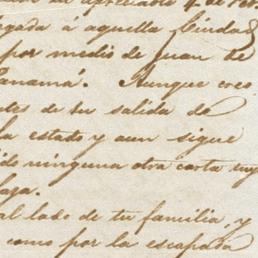 apreciable 4 de
llegada á aquella Ciudad
por medio de Juan de
Panamá. Aunque creo
tes de tu salida de
la estado y aun sigue
do ninguna otra carta suy
laga.
al lado de tu familia, y
como por la escapada